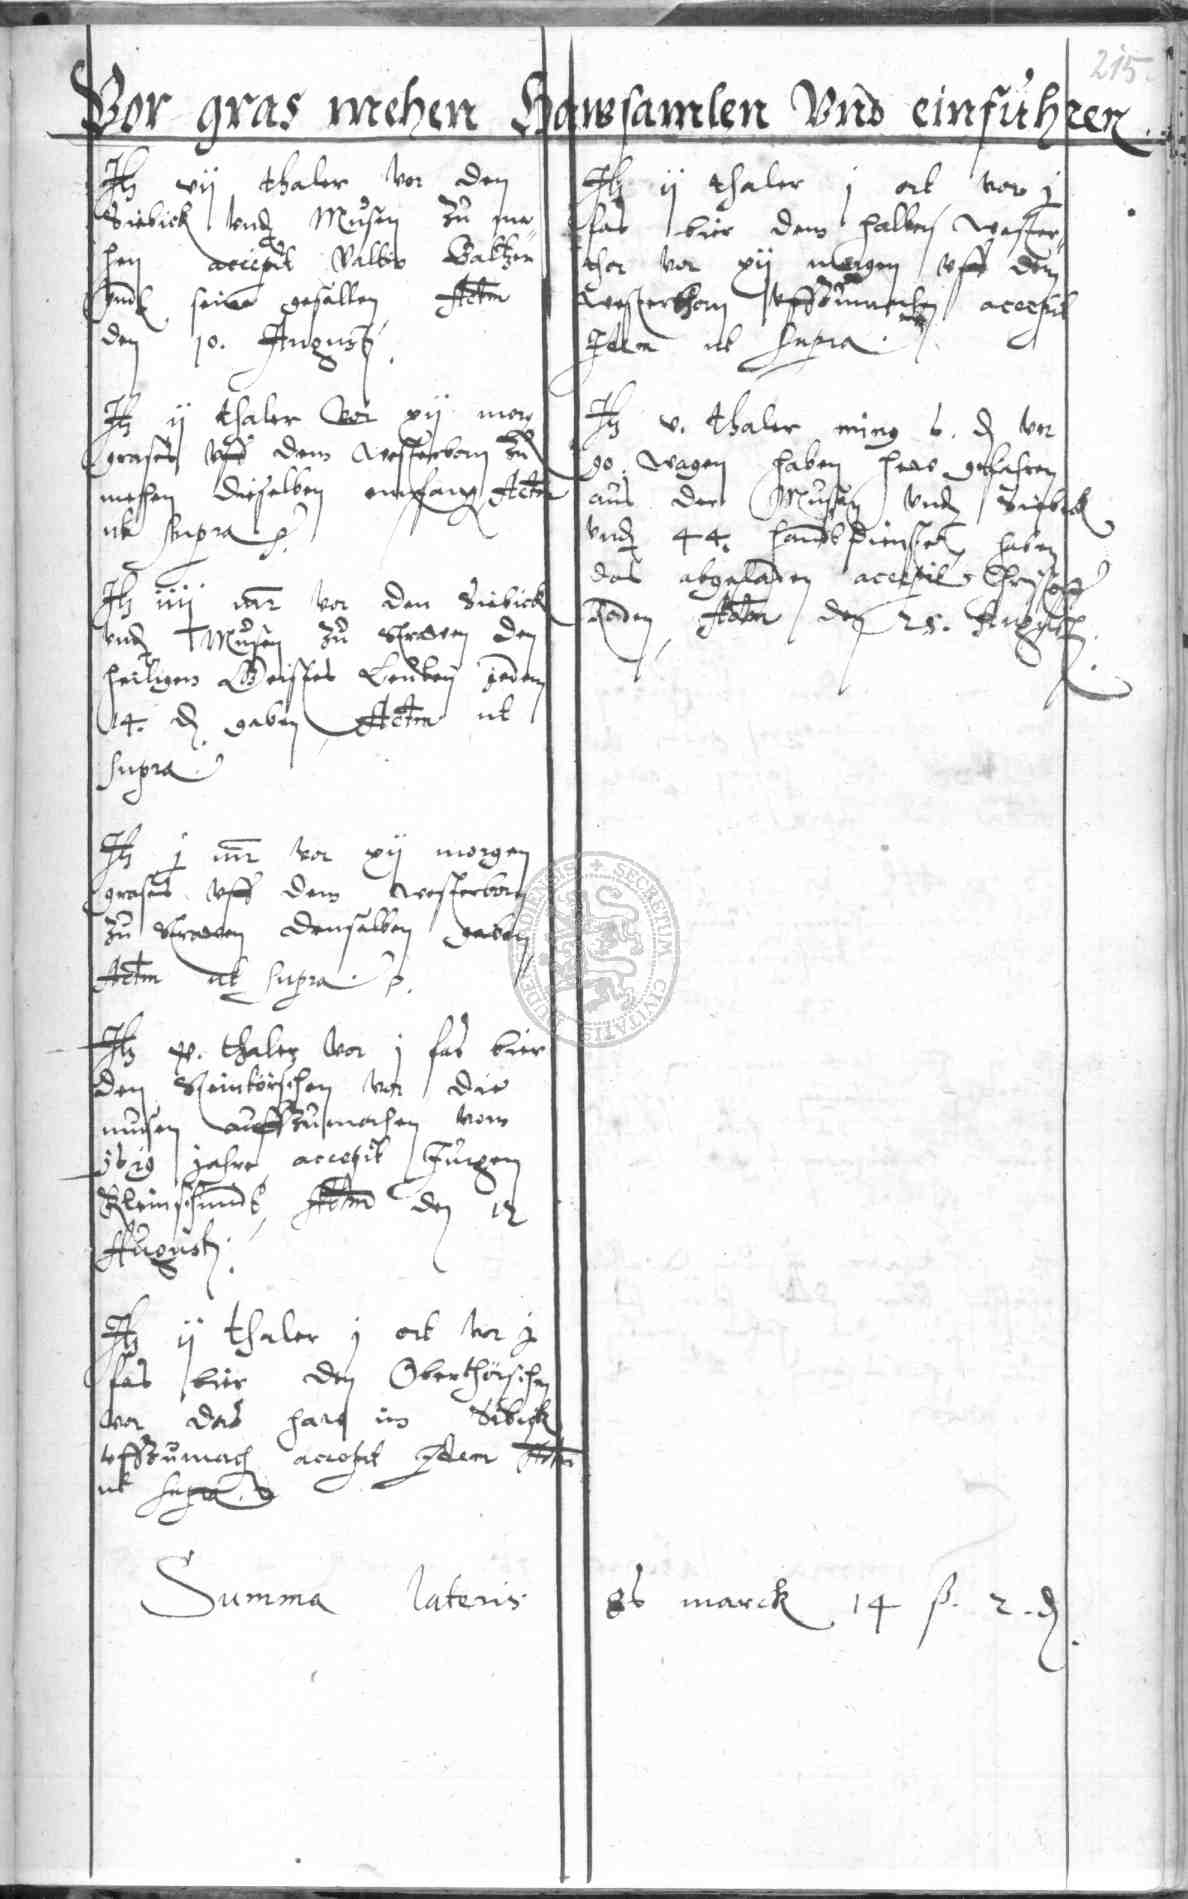 215.
Vor gras mehen Hawsamlen Vnd einfuhren.
Itz vij thaler vor den
Siebick vnd Musen zu me-
hen accepit Valtin Baltzer
vnd seine gesellen Actm
den 10. Augustj.
Itz ij thaler vor xij morg
grases vff dem Westerborn zu
mehen dieselben empfang Actm
ut supra
Itz iiij mr vor den Siebick
vnd Musen zu streuen den
heiligen Geistes Leuten jedem
14. d gaben Actm ut
supra.
Itz j mr vor xij morgen
grases vff dem Westerborn
zu streuen denselben gaben
Actm ut supra.
Itz thaler vor j fas bier
den Steinkörschen vor die
musen auffzumachen vom
jahre accepit Jurgen
Kleinschmidt Actm den 12
Augustj.
Itz ij thaler j ort vor j
fas bier den Oberthörschen
vor das haw im Sibick
vffzumach accepit Idem Actm
ut supra.
Itz ij thaler j ort vor j
fas bier dem halben Wester-
thor vor xij morgen vff dem
Westerborn vffzumachen accepit
Idem ut supra.
Itz v. thaler ming 6. d vor
90. wagen haben haw gefahren
aus der Musen vnd Siebick
vnd 44. handtdienste haben
das abgeladen accepit Christoff
Boden, Actm den 28. Augustj.
Summa lateris 86 marck 14 ß. 2. d.
SECRETUM CIVITATIS